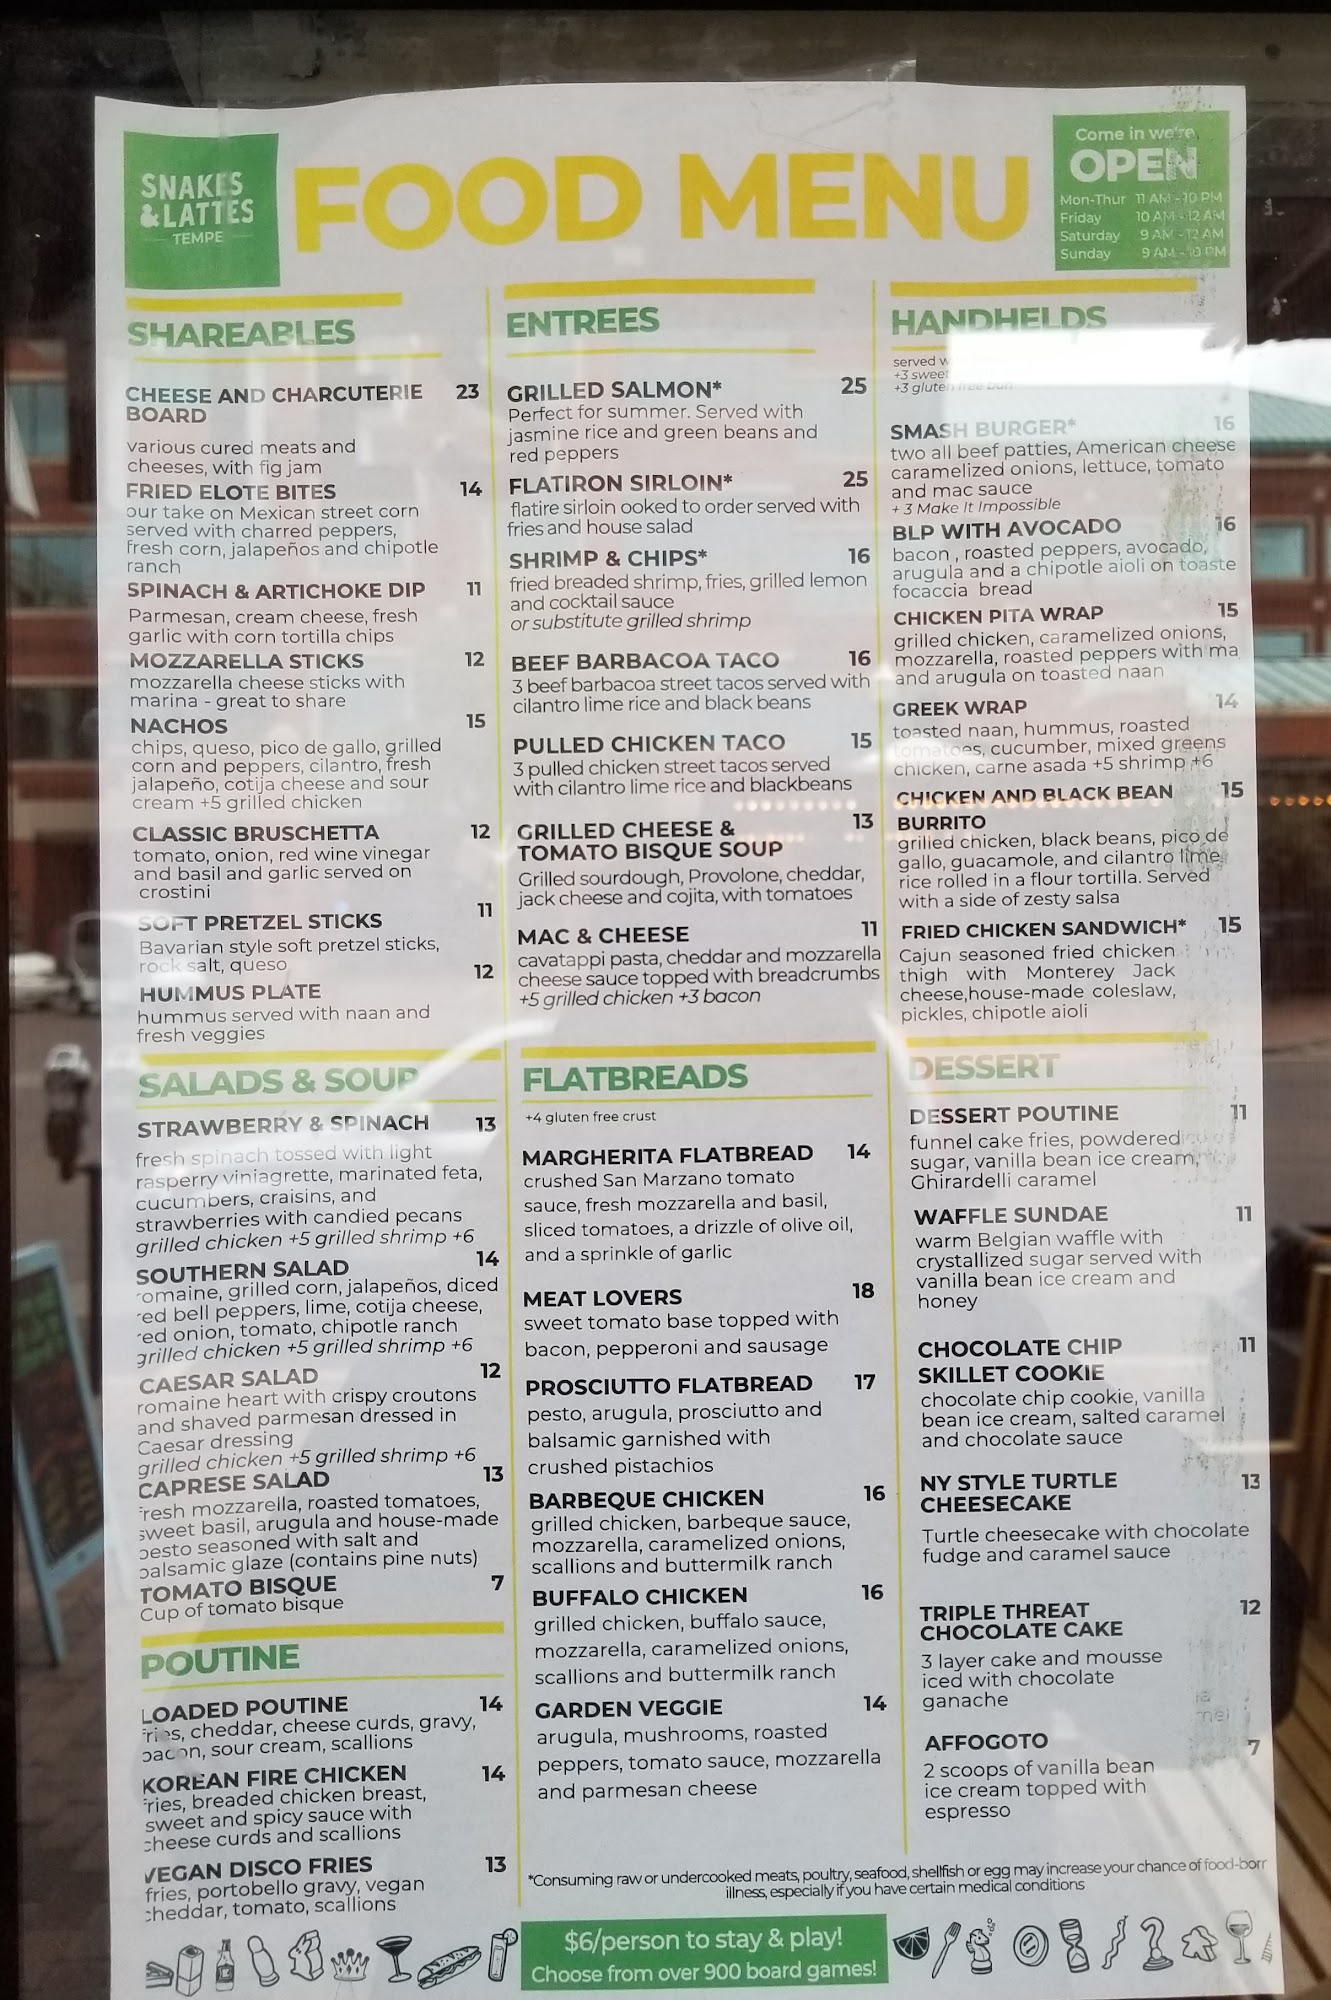 SNAKES
&LATTES
TEMPE
FOOD MENU
Come in we're
OPEN
Mon-Thur 11 AM - 10 PM
Friday 10 AM - 12 AM
Saturday 9 AM - 12 AM
Sunday 9 AM - 10 PM
SHAREABLES
CHEESE AND CHARCUTERIE 23
BOARD
various cured meats and
cheeses, with fig jam
FRIED ELOTE BITES 14
our take on Mexican street corn
served with charred peppers,
fresh corn, jalapeños and chipotle
ranch
SPINACH & ARTICHOKE DIP 11
Parmesan, cream cheese, fresh
garlic with corn tortilla chips
MOZZARELLA STICKS 12
mozzarella cheese sticks with
marina - great to share
NACHOS 15
chips, queso, pico de gallo, grilled
corn and peppers, cilantro, fresh
jalapeño, cotija cheese and sour
cream +5 grilled chicken
CLASSIC BRUSCHETTA 12
tomato, onion, red wine vinegar
and basil and garlic served on
crostini
SOFT PRETZEL STICKS 11
Bavarian style soft pretzel sticks,
rock salt, queso
HUMMUS PLATE 12
hummus served with naan and
fresh veggies
SALADS & SOUP
STRAWBERRY & SPINACH 13
fresh spinach tossed with light
rasperry viniagrette, marinated feta,
cucumbers, craisins, and
strawberries with candied pecans
grilled chicken +5 grilled shrimp +6
SOUTHERN SALAD 14
romaine, grilled corn, jalapeños, diced
red bell peppers, lime, cotija cheese,
red onion, tomato, chipotle ranch
grilled chicken +5 grilled shrimp +6
CAESAR SALAD 12
romaine heart with crispy croutons
and shaved parmesan dressed in
Caesar dressing
grilled chicken +5 grilled shrimp +6
CAPRESE SALAD 13
fresh mozzarella, roasted tomatoes,
sweet basil, arugula and house-made
pesto seasoned with salt and
balsamic glaze (contains pine nuts)
TOMATO BISQUE 7
Cup of tomato bisque
POUTINE
LOADED POUTINE 14
fries, cheddar, cheese curds, gravy,
bacon, sour cream, scallions
KOREAN FIRE CHICKEN 14
fries, breaded chicken breast,
sweet and spicy sauce with
cheese curds and scallions
VEGAN DISCO FRIES 13
fries, portobello gravy, vegan
cheddar, tomato, scallions
ENTREES
GRILLED SALMON* 25
Perfect for summer. Served with
jasmine rice and green beans and
red peppers
FLATIRON SIRLOIN* 25
flatire sirloin ooked to order served with
fries and house salad
SHRIMP & CHIPS* 16
fried breaded shrimp, fries, grilled lemon
and cocktail sauce
or substitute grilled shrimp
BEEF BARBACOA TACO 16
3 beef barbacoa street tacos served with
cilantro lime rice and black beans
PULLED CHICKEN TACO 15
3 pulled chicken street tacos served
with cilantro lime rice and blackbeans
GRILLED CHEESE & 13
TOMATO BISQUE SOUP
Grilled sourdough, Provolone, cheddar,
jack cheese and cojita, with tomatoes
MAC & CHEESE 11
cavatappi pasta, cheddar and mozzarella
cheese sauce topped with breadcrumbs
+5 grilled chicken +3 bacon
FLATBREADS
+4 gluten free crust
MARGHERITA FLATBREAD 14
crushed San Marzano tomato
sauce, fresh mozzarella and basil,
sliced tomatoes, a drizzle of olive oil,
and a sprinkle of garlic
MEAT LOVERS 18
sweet tomato base topped with
bacon, pepperoni and sausage
PROSCIUTTO FLATBREAD 17
pesto, arugula, prosciutto and
balsamic garnished with
crushed pistachios
BARBEQUE CHICKEN 16
grilled chicken, barbeque sauce,
mozzarella, caramelized onions,
scallions and buttermilk ranch
BUFFALO CHICKEN 16
grilled chicken, buffalo sauce,
mozzarella, caramelized onions,
scallions and buttermilk ranch
GARDEN VEGGIE 14
arugula, mushrooms, roasted
peppers, tomato sauce, mozzarella
and parmesan cheese
HANDHELDS
served
+3 sweet
+3 gluten free bun
SMASH BURGER* 16
two all beef patties, American cheese
caramelized onions, lettuce, tomato
and mac sauce
+ 3 Make It Impossible
BLP WITH AVOCADO 16
bacon , roasted peppers, avocado,
arugula and a chipotle aioli on toaste
focaccia bread
CHICKEN PITA WRAP 15
grilled chicken, caramelized onions,
mozzarella, roasted peppers with ma
and arugula on toasted naan
GREEK WRAP 14
toasted naan, hummus, roasted
tomatoes, cucumber, mixed greens
chicken, carne asada +5 shrimp +6
CHICKEN AND BLACK BEAN 15
BURRITO
grilled chicken, black beans, pico de
gallo, guacamole, and cilantro lime
rice rolled in a flour tortilla. Served
with a side of zesty salsa
FRIED CHICKEN SANDWICH* 15
Cajun seasoned fried chicken
thigh with Monterey Jack
cheese,house-made coleslaw,
pickles, chipotle aioli
DESSERT
DESSERT POUTINE 11
funnel cake fries, powdered
sugar, vanilla bean ice cream,
Ghirardelli caramel
WAFFLE SUNDAE 11
warm Belgian waffle with
crystallized sugar served with
vanilla bean ice cream and
honey
CHOCOLATE CHIP 11
SKILLET COOKIE
chocolate chip cookie, vanilla
bean ice cream, salted caramel
and chocolate sauce
NY STYLE TURTLE 13
CHEESECAKE
Turtle cheesecake with chocolate
fudge and caramel sauce
TRIPLE THREAT 12
CHOCOLATE CAKE
3 layer cake and mousse
iced with chocolate
ganache
AFFOGOTO 7
2 scoops of vanilla bean
ice cream topped with
espresso
*Consuming raw or undercooked meats, poultry, seafood, shellfish or egg may increase your chance of food-borr
illness, especially if you have certain medical conditions
$6/person to stay & play!
Choose from over 900 board games!